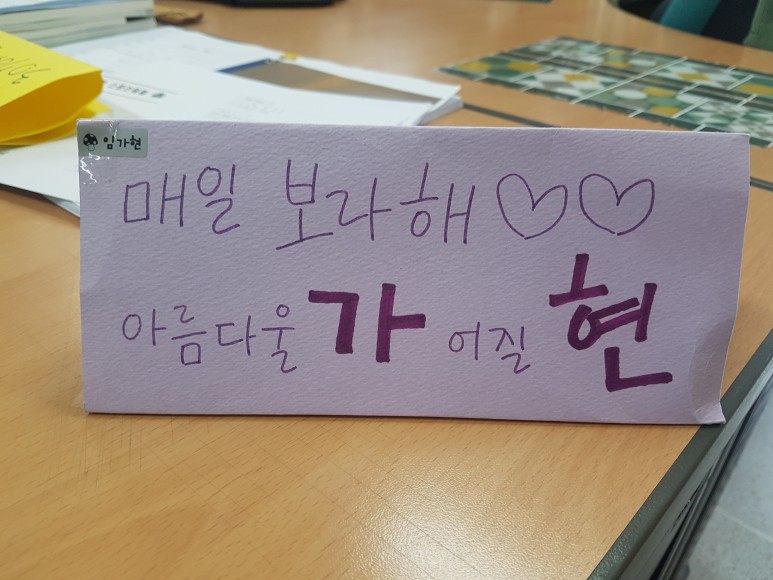 임가현
매일 보라해♡♡
아름다울 가 어질 현